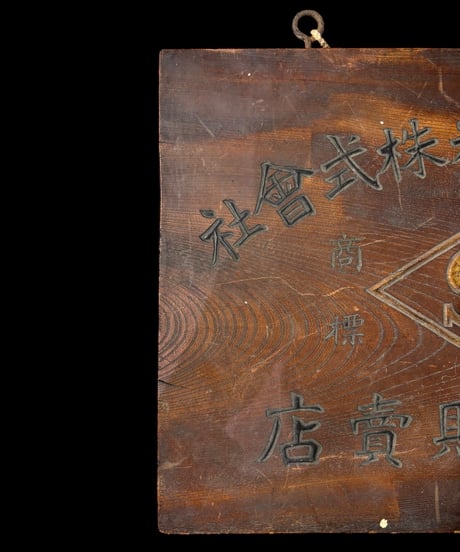 株式會社
商標
賣店